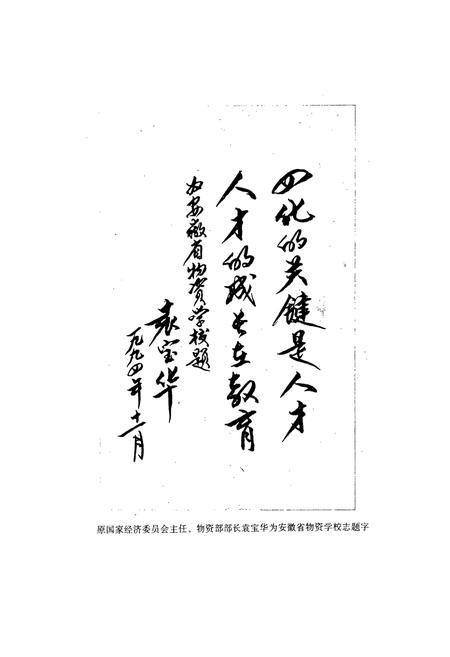 四化的关键是人才
人才的成长在教育
为安徽省物资学校题
袁宝华
一九九四年十一月
原国家经济委员会主任、物资部部长袁宝华为安徽省物资学校志题字